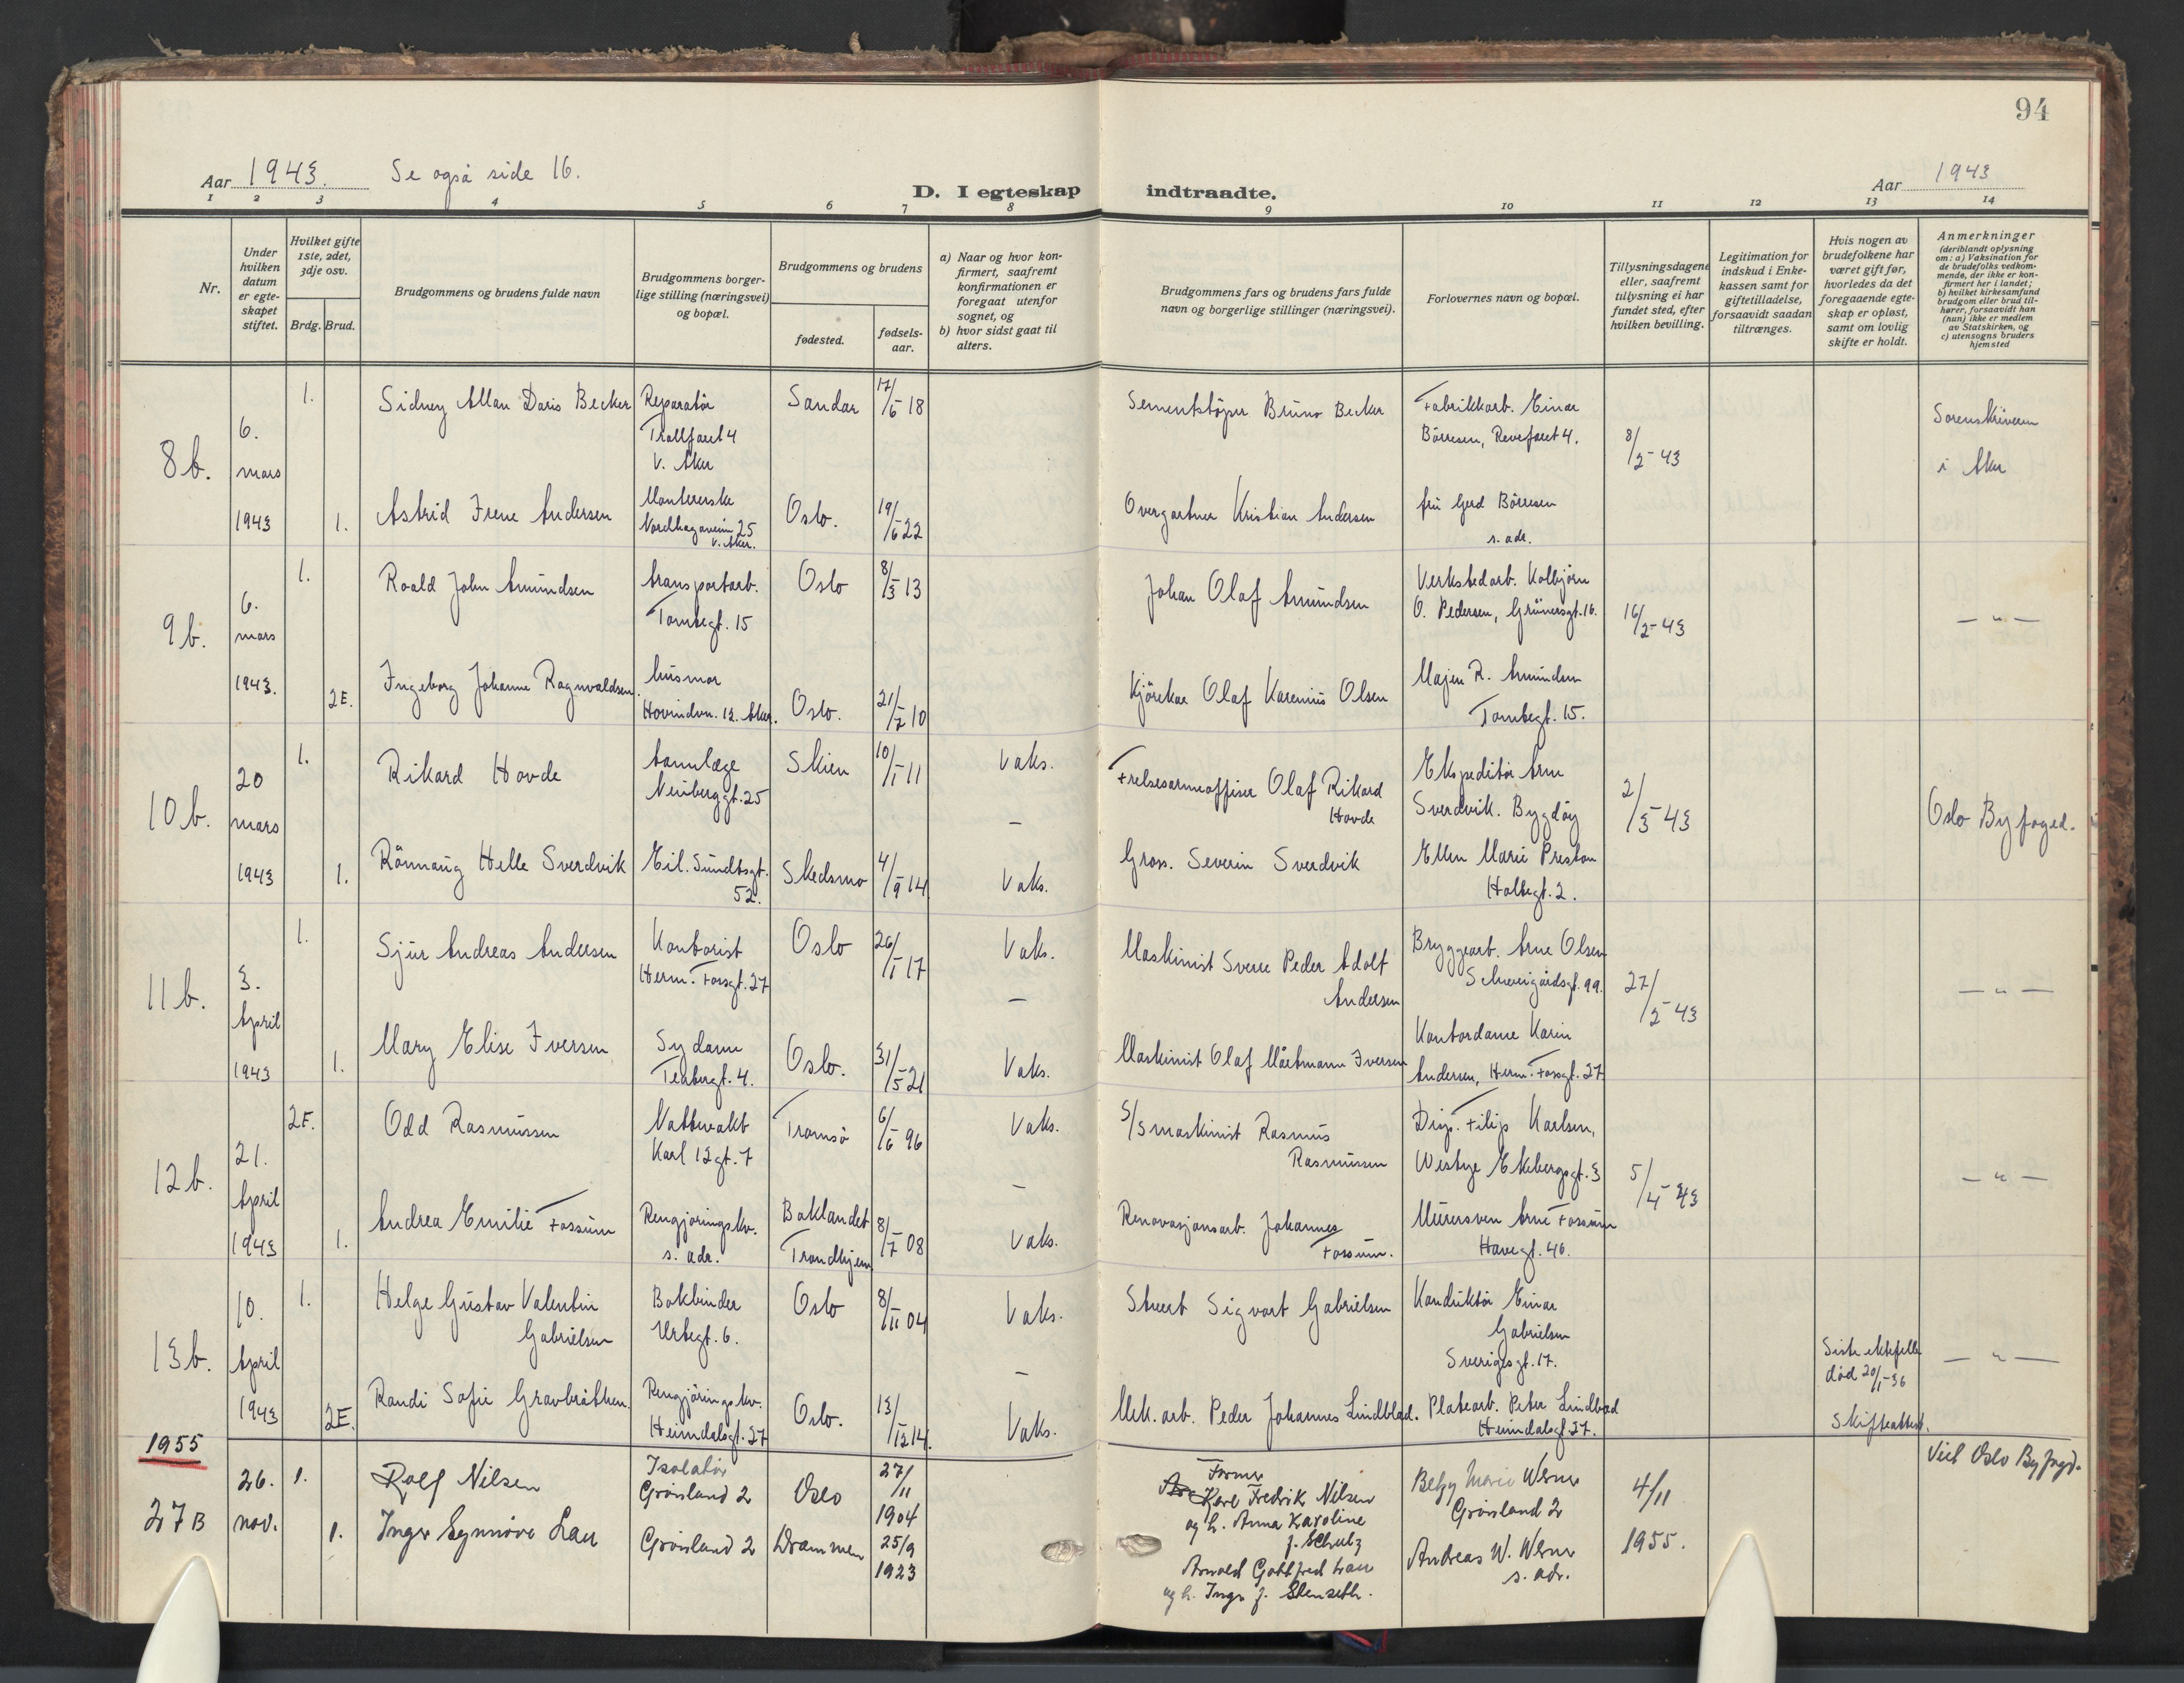 94
Aar 1943. Se også side 16.
D. I egteskap indtraadte.
Aar 1943
1 2 3 4 5 6 7 8 9 10 11 12 13 14
Nr.
Under hvilken datum er egteskapet stiftet.
Hvilket gifte 1ste, 2det, 3dje osv.
Brdg. Brud.
Brudgommens og brudens fulde navn
Brudgommens borgerlige stilling (næringsvei) og bopæl.
Brudgommens og brudens
fødested.
fødselsaar.
a) Naar og hvor konfirmert, saafremt konfirmationen er foregaat utenfor sognet, og
b) hvor sidst gaat til alters.
Brudgommens fars og brudens fars fulde navn og borgerlige stillinger (næringsvei).
Forlovernes navn og bopæl.
Tillysningsdagene eller, saafremt tillysning ei har fundet sted, efter hvilken bevilling.
Legitimation for indskud i Enkekassen samt for giftetilladelse, forsaavidt saadan tiltrænges.
Hvis nogen av brudefolkene har været gift før, hvorledes da det foregaaende egteskap er opløst, samt om lovlig skifte er holdt.
Anmerkninger
(deriblandt oplysning om: a) Vaksination for de brudefolks vedkommende, der ikke er konfirmert her i landet;
b) hvilket kirkesamfund brudgom eller brud tilhører, forsaavidt han (hun) ikke er medlem av Statskirken, og
c) utensogns bruders hjemsted
8b.
6. mars 1943
1. Sidney Allan Doris Becker
Reparatør
Trollfaret 4
V. Aker
Sandar
17/6-18
Sementstøper Bruno Becker
Fabrikkarb. Einar
Børresen, Revefaret 4.
8/2-43
Sorenskriveren
i Aker
1. Astrid Irene Andersen
Montererske
Nordhagaveien 25
V. Aker.
Oslo.
19/6-22
Overgartner Kristian Andersen
fru Gerd Børresen
s. adr.
9b.
6. mars 1943.
1. Roald John Amundsen
transportarb.
Tornbegt. 15
Oslo
8/3-13
Johan Olaf Amundsen
Verkstedarb. Kolbjørn
O. Pedersen, Grünersgt. 16.
16/2-43
— " —
2E. Ingeborg Johanne Ragnvaldsen
husmor
Hovindvn. 12. Aker.
Oslo.
21/7-10
Kjørekar Olaf Karenius Olsen
Majen R. Amundsen
Tornbegt. 15.
10b.
20 mars 1943
1. Rikard Hovde
tannlæge
Neuberggt. 25
Skien
10/1-11
Vaks.
—
Frelsesarmeoffiser Olaf Rikard
Hovde
Ekspeditør Arne
Sverdvik. Bygdøy
2/3-43
Oslo Byfoged.
1. Rønnaug Helle Sverdvik
Eil. Sundtsgt.
52.
Skedsmo
4/9-14
Vaks.
Gross. Severin Sverdvik
Ellen Marie Preston
Holbegt. 2.
11b.
3. April 1943
1. Sjur Andreas Andersen
Kontorist
Herm. Fossgt. 27
Oslo
26/1-17
Vaks.
—
Maskinist Sverre Peder Adolf
Andersen
Bryggearb. Arne Olsen
Schweigårdsgt. 99.
27/2-43
— " —
1. Mary Elise Iversen
Sydame
Terbergt. 4.
Oslo.
31/5-21
Vaks.
Maskinist Olaf Mårtmann Iversen
Kontordame Karin
Andersen, Herm. Fossgt. 27
12b.
21. April 1943
2E. Odd Rasmussen
Nattevakt
Karl 12 gt. 7
Tromsø
6/6-96
Vaks.
—
S/S maskinist Rasmus
Rasmussen
Disp. Filip Karlsen,
Westye Ekebergsgt. 3
5/4-43
— " —
1. Andrea Emilie Fossum
Rengjøringskv.
s. adr.
Baklandet
Trondhjem
8/7-08
Vaks.
Renovasjonsarb. Johannes
Fossum.
Murersven Arne Fossum
Havegt. 46.
13b.
10. April 1943
1. Helge Gustav Valentin
Gabrielsen
Bokbinder
Urtegt. 6.
Oslo
8/11-04
Vaks.
—
Stuert Sigvart Gabrielsen
Konduktør Einar
Gabrielsen
Sverigesgt. 17.
Siste ektefelle
død 20/1-36
Skifteattest.
— " —
2E. Randi Sofie Gravbråthen
Rengjøringskv.
Heimdalsgt. 27
Oslo.
13/12-14.
Vaks.
Mek. arb. Peder Johannes Lindblad.
Platearb. Peter Lindblad
Heimdalsgt 27.
1955
27B
26. nov.
1. Rolf Nilsen
Isolatør
Grønland 2
Oslo
27/11
1904
Former
Karl Fredrik Nilsen
og h. Anna Karoline
f. Schulz
Betzy Marie Werner
Grønland 2
4/11
1955.
Viet Oslo Byfogd.
1. Inger Synnøve Lau
Grønland 2
Drammen
25/9
1923
Arnold Gottfred Lau
og h. Inga f. Stenseth.
Andreas W. Werner
s. adr.